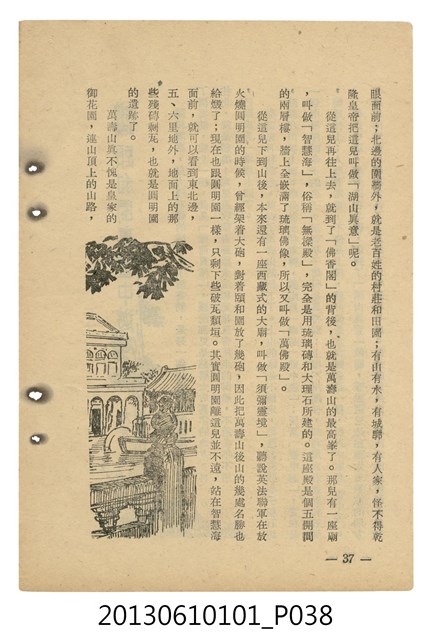 眼面前;北邊的圍牆外,就是老百姓的村莊和田園;有山有水,有城郭,有人家,怪不得乾
隆皇帝把這兒叫做「湖山眞意」呢。
從這兒再往上去,就到了「佛香閣」的背後,也就是萬壽山的最高峯了。那兒有一座廟
,叫做「智慧海」,俗稱「無樑殿」,完全是用琉璃磚和大理石所建的。這座殿是個五開間
的兩層樓,牆上全嵌滿了琉璃佛像,所以又叫做「萬佛殿」。
從這兒下到山後,本來還有一座西藏式的大廟,叫做「須彌靈境」,聽說英法聯軍在放
火燒圓明園的時候,曾經架着大砲,對着頤和園放了幾砲,因此把萬壽山後山的幾處名勝也
給燬了;現在也跟圓明園一樣,只剩下些破瓦頹垣。其實圓明園離這兒並不遠,站在智慧海
面前,就可以看到東北邊,
五、六里地外,地面上的那
些殘磚剩瓦,也就是圓明園
的遺跡了。
萬壽山眞不愧是皇家的
御花園,連山頂上的山路,
— 37 —
20130610101_P038